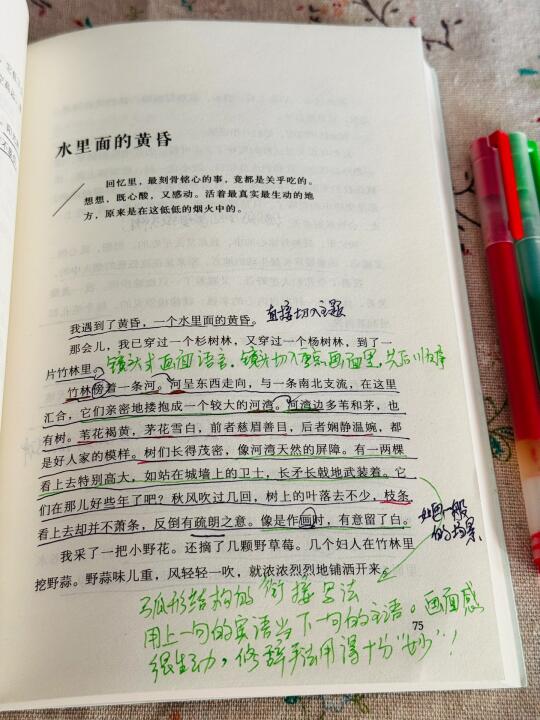 水里面的黄昏
回忆里，最刻骨铭心的事，竟都是关乎吃的。
想想，既心酸，又感动。活着最真实最生动的地
方，原来是在这低低的烟火中的。
我遇到了黄昏，一个水里面的黄昏。
直接切入主题
那会儿，我已穿过一个杉树林，又穿过一个杨树林，到了一
片竹林里。
镜头式画面语言，镜头切入 画面里，先后顺序
竹林傍着一条河。河呈东西走向，与一条南北支流，在这里
汇合，它们亲密地搂抱成一个较大的河湾。河湾边多苇和茅，也
有树。苇花褐黄，茅花雪白，前者慈眉善目，后者娴静温婉，都
是好人家的模样。树们长得茂密，像河湾天然的屏障。有一两棵
看上去特别高大，如站在城墙上的卫士，长矛长戟地武装着。它
们在那儿好些年了吧？秋风吹过几回，树上的叶落去不少，枝条
看上去却并不萧条，反倒有疏朗之意。像是作画时，有意留了白。
如画一般
的场景
我采了一把小野花。还摘了几颗野草莓。几个妇人在竹林里
挖野蒜。野蒜味儿重，风轻轻一吹，就浓浓烈烈地铺洒开来。
弧形结构的衔接写法
用上一句的宾语当下一句的主语。画面感
很生动，修辞手法用得十分“妙”！
75